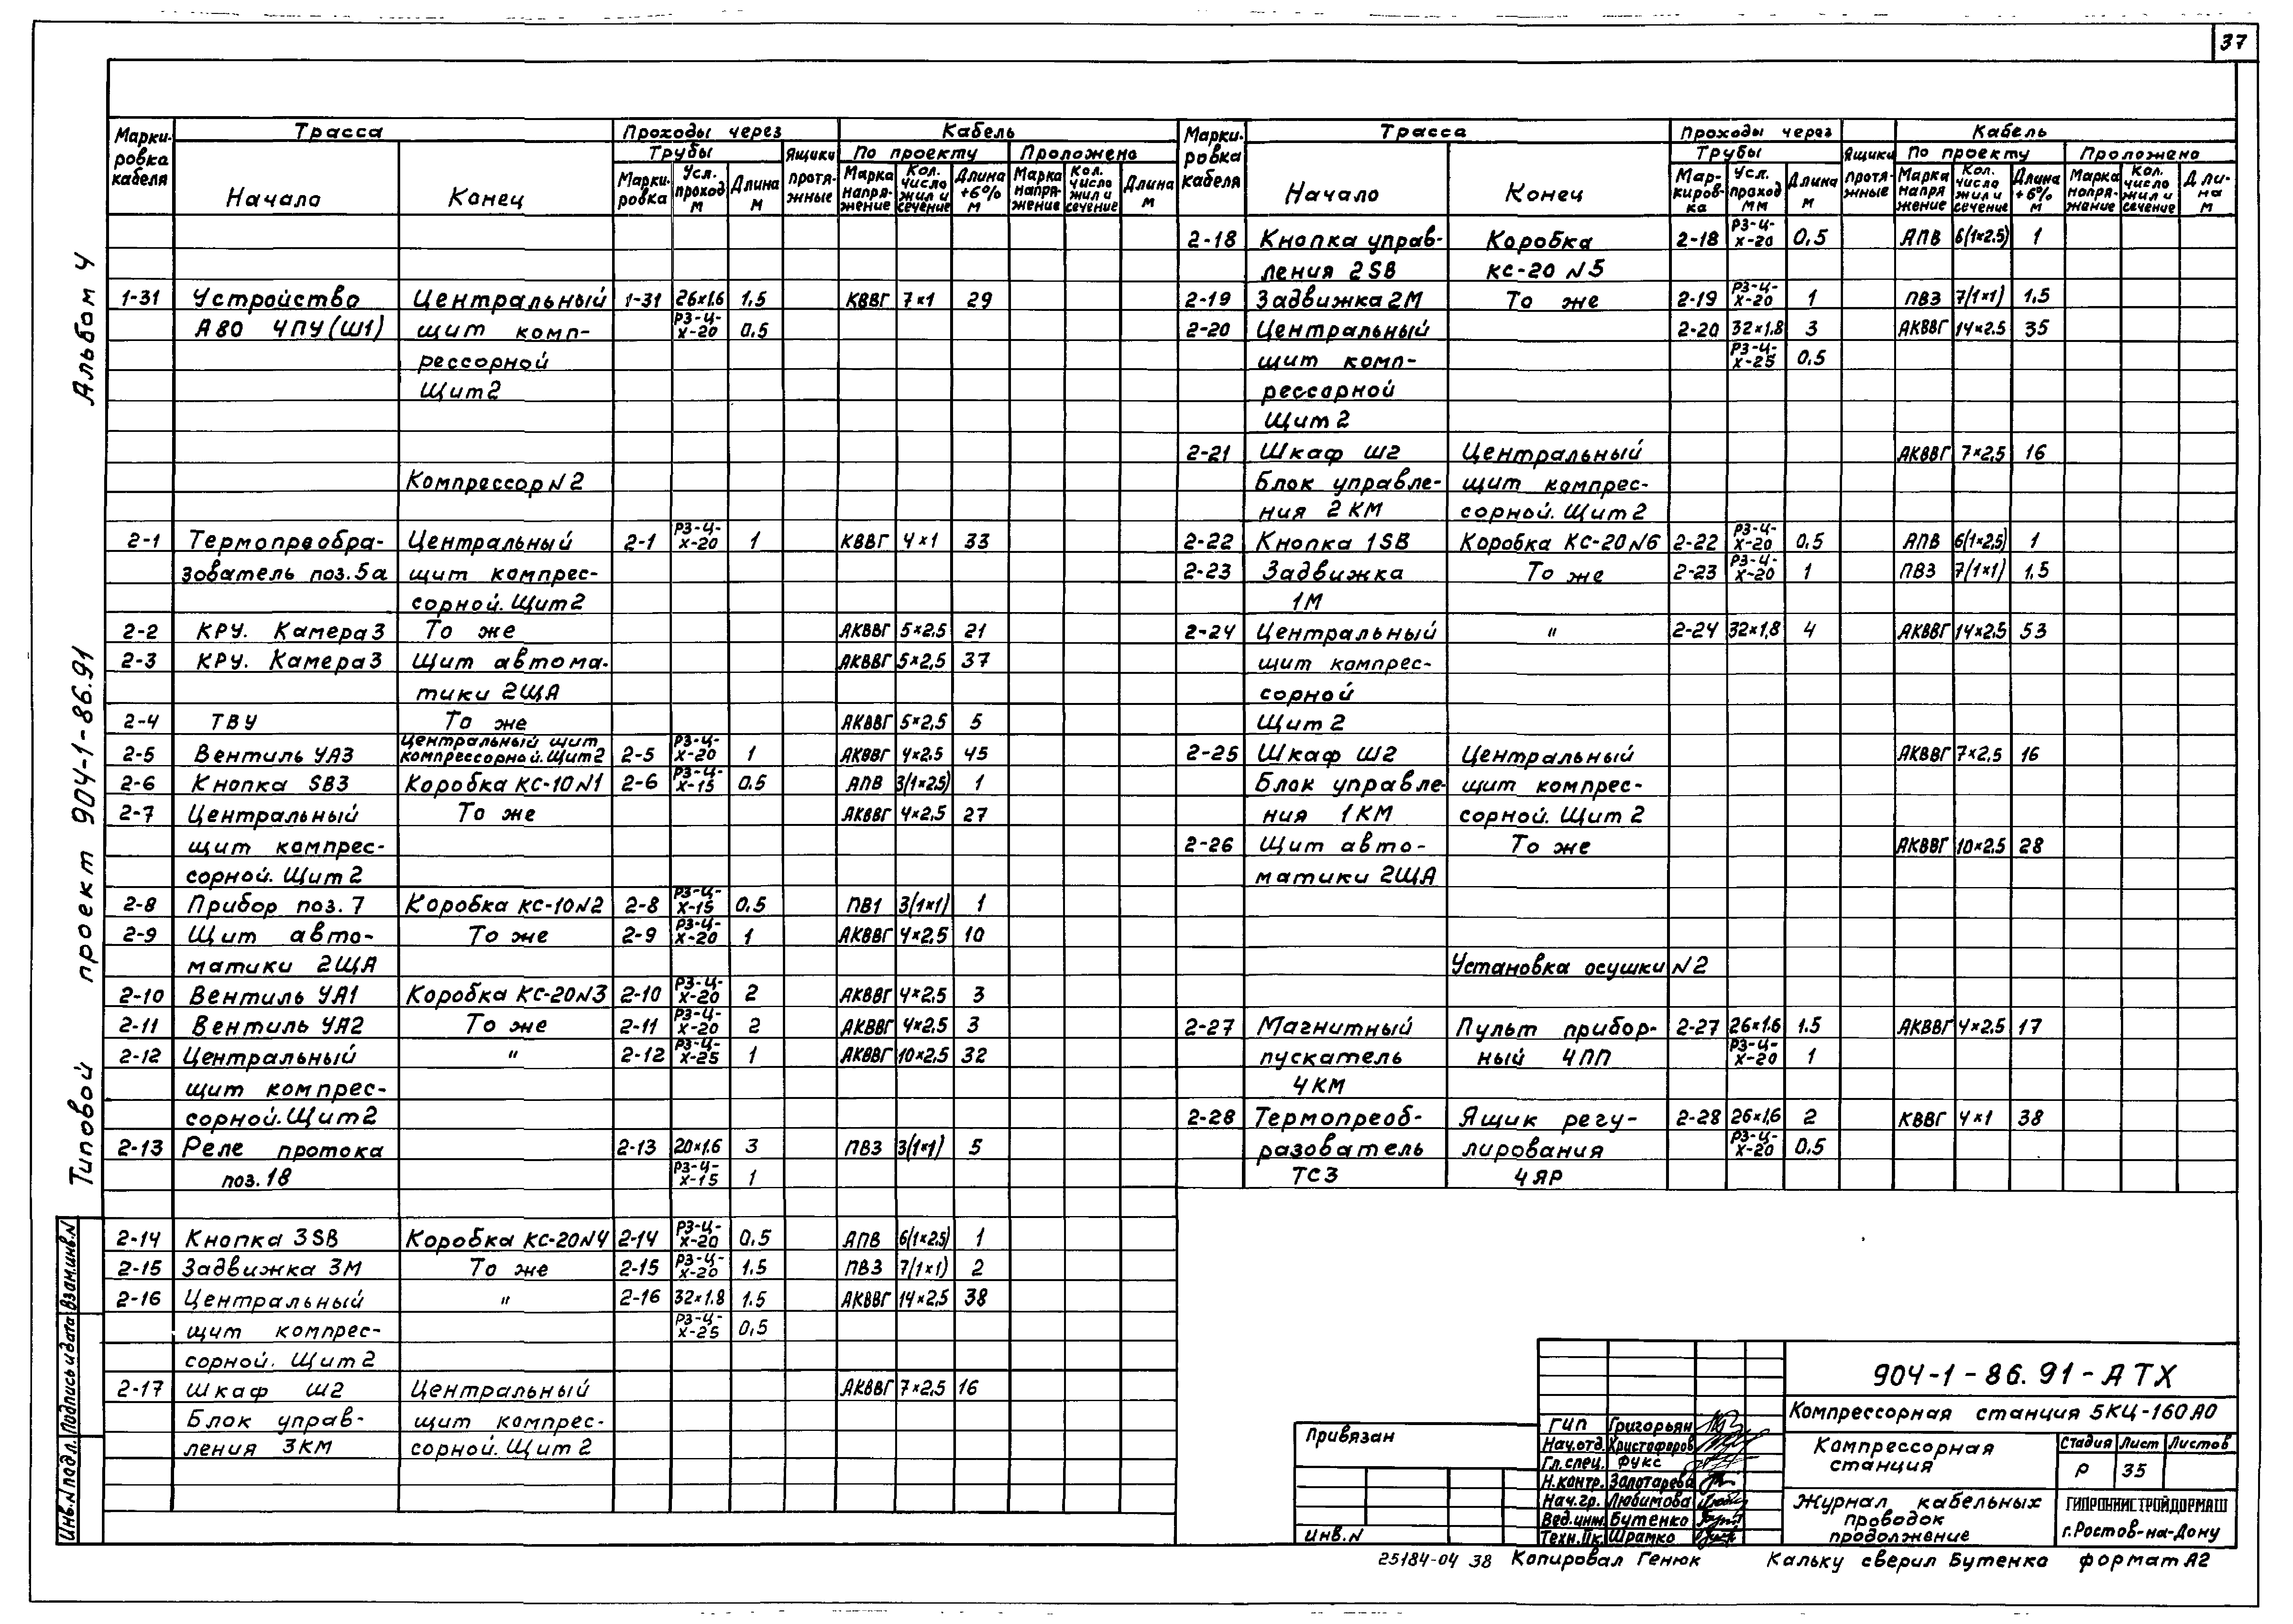 37
Альбом 4
Типовой проект 904-1-86.91
Взам.инв.N
Подпись и дата
Инв.N подл.
Марки- Трасса Проходы через Кабель
ровка Трубы Ящики По проекту Проложено
кабеля Начало Конец Марки- Усл. Длина протя- Марка Кол. Длина Марка Кол. Длина
ровка проход м жные напря- число +6% напря- число м
м жение жил и м жение жил и
сечение сечение
1-31 Устройство Центральный 1-31 26×1.6 1.5 КВВГ 7×1 29
А80 ЧПУ(Ш1) щит комп- РЗ-Ц-Х-20 0.5
рессорной
Щит2
Компрессор N2
2-1 Термопреобра- Центральный 2-1 РЗ-Ц-Х-20 1 КВВГ 4×1 33
зователь поз.5а щит компрес-
сорной. Щит2
2-2 КРУ. Камера3 То же АКВВГ 5×2,5 21
2-3 КРУ. Камера3 Щит автома- АКВВГ 5×2,5 37
тики 2ЩА
2-4 ТВУ То же АКВВГ 5×2,5 5
2-5 Вентиль УА3 Центральный щит компрессорной. Щит2 2-5 РЗ-Ц-Х-20 1 АКВВГ 4×2,5 45
2-6 Кнопка SB3 Коробка КС-10N1 2-6 РЗ-Ц-Х-15 0.5 АПВ 3(1×2.5) 1
2-7 Центральный То же АКВВГ 4×2,5 27
щит компрес-
сорной. Щит2
2-8 Прибор поз. 7 Коробка КС-10N2 2-8 РЗ-Ц-Х-15 0.5 ПВ1 3(1×1) 1
2-9 Щит авто- То же 2-9 РЗ-Ц-Х-20 1 АКВВГ 4×2,5 10
матики 2ЩА
2-10 Вентиль УА1 Коробка КС-20N3 2-10 РЗ-Ц-Х-20 2 АКВВГ 4×2,5 3
2-11 Вентиль УА2 То же 2-11 РЗ-Ц-Х-20 2 АКВВГ 4×2,5 3
2-12 Центральный " 2-12 РЗ-Ц-Х-25 1 АКВВГ 10×2,5 32
щит компрес-
сорной. Щит2
2-13 Реле протока 2-13 20×1.6 3 ПВ3 3(1×1) 5
поз. 18 РЗ-Ц-Х-15 1
2-14 Кнопка 3SB Коробка КС-20N4 2-14 РЗ-Ц-Х-20 0.5 АПВ 6(1×2.5) 1
2-15 Задвижка 3М То же 2-15 РЗ-Ц-Х-20 1.5 ПВ3 7(1×1) 2
2-16 Центральный " 2-16 32×1.8 1.5 АКВВГ 14×2,5 38
щит компрес- РЗ-Ц-Х-25 0,5
сорной. Щит2
2-17 Шкаф Ш2 Центральный АКВВГ 7×2,5 16
Блок управ- щит компрес-
ления 3КМ сорной. Щит 2
Марки- Трасса Проходы через Кабель
ровка Трубы Ящики По проекту Проложено
кабеля Начало Конец Мар- Усл. Длина протя- Марка Кол. Длина Марка Кол. Дли-
киров- проход м жные напря число +6% напря- число на
ка мм жение жил и м жение жил и м
сечение сечение
2-18 Кнопка управ- Коробка 2-18 РЗ-Ц-Х-20 0,5 АПВ 6(1×2.5) 1
ления 2SB КС-20 N5
2-19 Задвижка 2М То же 2-19 РЗ-Ц-Х-20 1 ПВ3 7(1×1) 1.5
2-20 Центральный 2-20 32×1.8 3 АКВВГ 14×2.5 35
щит комп- РЗ-Ц-Х-25 0.5
рессорной
Щит 2
2-21 Шкаф Ш2 Центральный АКВВГ 7×2,5 16
Блок управле- щит компрес-
ния 2 КМ сорной. Щит 2
2-22 Кнопка 1SB Коробка КС-20N6 2-22 РЗ-Ц-Х-20 0,5 АПВ 6(1×2,5) 1
2-23 Задвижка То же 2-23 РЗ-Ц-Х-20 1 ПВ3 7(1×1) 1,5
1М
2-24 Центральный " 2-24 32×1,8 4 АКВВГ 14×2,5 53
щит компрес-
сорной
Щит 2
2-25 Шкаф Ш2 Центральный АКВВГ 7×2,5 16
Блок управле- щит компрес-
ния 1КМ сорной. Щит 2
2-26 Щит авто- То же АКВВГ 10×2,5 28
матики 2ЩА
Установка осушки N2
2-27 Магнитный Пульт прибор- 2-27 26×1.6 1.5 АКВВГ 4×2,5 17
пускатель ный 4ПП РЗ-Ц-Х-20 1
4КМ
2-28 Термопреоб- Ящик регу- 2-28 26×1,6 2 КВВГ 4×1 38
разователь лирования РЗ-Ц-Х-20 0.5
ТС3 4ЯР
Привязан
Инв.N
904-1-86.91-АТХ
Компрессорная станция 5КЦ-160А0
ГИП Григорьян
Нач.отд. Христофоров
Гл.спец. Фукс
Н.контр. Золотарева
Нач.гр. Любимова
Вед.инж. Бутенко
Техн.IIк. Шрамко
Компрессорная
станция
Стадия Лист Листов
Р 35
Журнал кабельных
проводок
продолжение
ГИПРОНИИСТРОЙДОРМАШ
г.Ростов-на-Дону
25184-04 38 Копировал Генюк Кальку сверил Бутенко формат А2